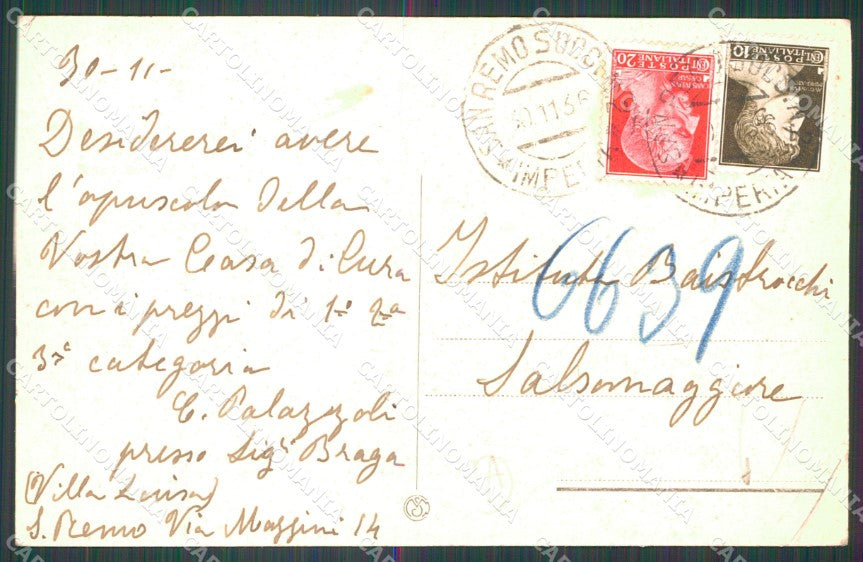 30-11-
Desidererei avere
l'opuscolo della
Vostra Casa di Cura
con i prezzi di 1ª 2ª
3ª categoria
C. Palazzoli
presso Sigʳ Braga
(Villa Luisa)
S. Remo Via Mazzini 14
SAN REMO SUCC
30.11.36
IMPERIA
POSTE ITALIANE
20
POSTE ITALIANE
10
Istituto Baistrocchi
6639
Salsomaggiore
CARTOLINOMANIA